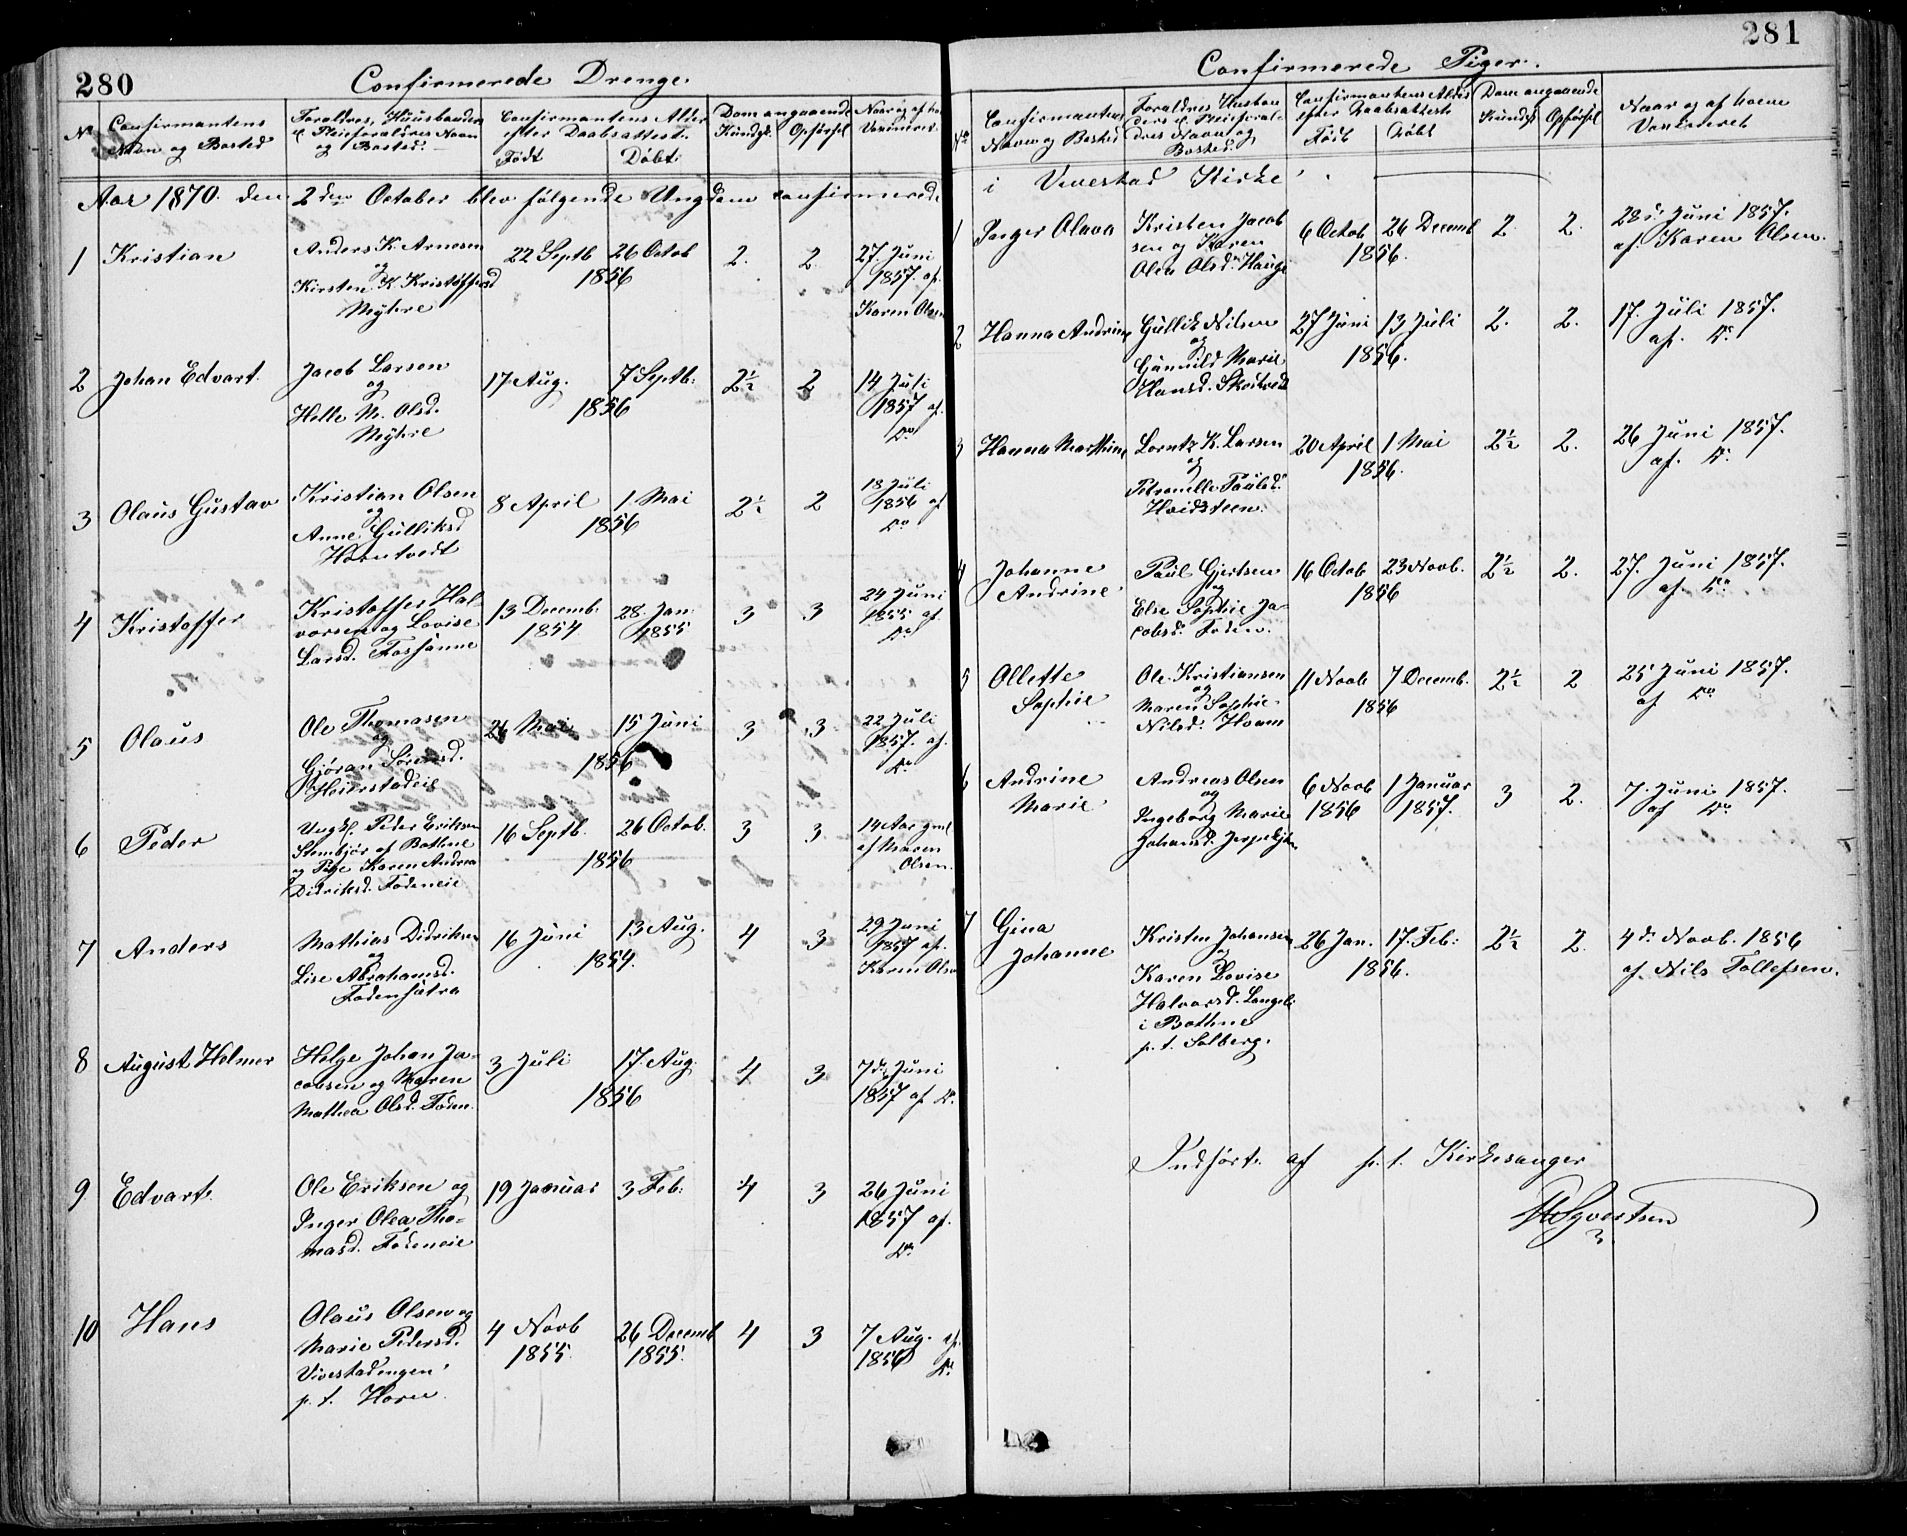 280
Confirmerede Drenge.
No
Confirmantens Navn og Bosted
Forældres, Huusbonders el. Pleieforældres Navn og Bosted.
Confirmantens Alder efter Daabsattest.
Født
Døbt
Dom angaaende
Kundsk.
Opførsel
Naar og af hv.
Vaccineret
Aar 1870. den 2den October blev følgende Ungdom confirmerede
1 Kristian
Anders K. Arnesen
og
Kirsten K. Kristoffersd
Myhre
22 Septb 26 Octob
1856
2. 2.
27. Juni
1857. af.
Karen Olsen
2 Johan Edvart.
Jacob Larsen
og
Helle M. Olsd.
Myhre
17. Aug. 7 Septb:
1856
2½ 2
14 Juli
1857 af.
Do
3 Olaus Gustav
Kristian Olsen
og
Anne Gulliksd
Horntvedt
8 April 1. Mai
1856
2½ 2
18 Juli
1856 af
Do
4 Kristoffer
Kristoffer Hal-
vorsen og Lovise
Larsd. Fossanne
13 Decemb. 28. Jan:
1854 1855
3 3
24 Juni
1855 af.
Do
5 Olaus
Ole Thomasen
og
Gjøran Sørensd.
Hoierstadeie
26 Mai 15 Juni
1856
3 3
22 Juli
1857. af.
Do
6 Peder
Ungk. Peder Eriksen
af Bothne
og Pige Karen Andrea
Didriksd. Fodeneie
16 Septb. 26 Octob.
1856
3 3
14 Aar gml.
af Maren
Olsen.
7 Anders
Mathias Didriksen
og
Lise Abrahamsd.
Fodensætra
16 Juni 13 Aug.
1854.
4 3
29 Juni
1857 af.
Karen Olsen
8 August Helmer
Helge Johan Ja-
cobsen og Maren
Mathea Olsd. Foden.
3 Juli 17. Aug.
1856
4 3
7de Juni
1857 af Do
9 Edvart.
Ole Eriksen og
Inger Olea Tho-
masd. Fodeneie
19 Januar 3 Feb:
4 3
26 Juni
1857 af.
Do
10 Hans
Olaus Olsen og
Marie Pedersd.
Vivestadengen
p. t. Horn.
4 Novb 26 Decemb
1855. 1855.
4 3
7 Aug. af.
1856 Do
281
Confirmerede Piger.
No
Confirmantens Navn og Bosted
Forældres Husbonders el. Pleieforældres Navn og Bosted.
Confirmantens Alder efter Daabsattest
Født
Døbt
Dom angaaende
Kundsk
Opførsel
Naar og af hvem Vaccineret
i Vivestad Kirke
1 Inger Olava
Kristen Jacob
sen og Karen
Olea Olsd. Hauge
6 Octob 26 Decemb
1856.
2. 2.
28de Juni 1857.
af Karen Olsen.
2 Hanna Andrine
Gullik Nilsen
og
Gunnild Marie
Hansd. Skortvedt
27 Juni 13 Juli
1856.
2. 2.
17. Juli 1857.
af. Do
3 Hanna Marthine
Lorntz K. Larsen
og
Petronelle Paulsd.
Hvidsteen.
20 April 1 Mai
1856.
2½ 2.
26 Juni 1857.
af. Do
4 Johanne
Andrine
Paul Gjertsen
og
Else Sophie Ja-
cobsd. Foden.
16 Octob 23 Novb.
1856
2½ 2.
27. Juni 1857.
af. Do
5 Ollette
Sophie
Ole Kristiansen
og
Maren Sophie
Nilsd. Hvam
11 Novb 7 Decemb.
1856
2½ 2
25 Juni 1857.
af Do
6 Andrine
Marie
Andreas Olsen
og
Ingeborg Marie
Johansd.
6 Novb 1 Januar
1856 1857.
3 2.
7. Juni 1857.
af Do
7 Gina
Johanne
Kristen Johansen
og
Karen Lovise
Halvorsd.
i Bothne
p. t. Solberg.
26 Jan. 17. Feb:
1856.
2½ 2.
4de Novb. 1856
af. Nils Tollefsen.
Indført. af p. t. Kirkesanger
Syvertsen